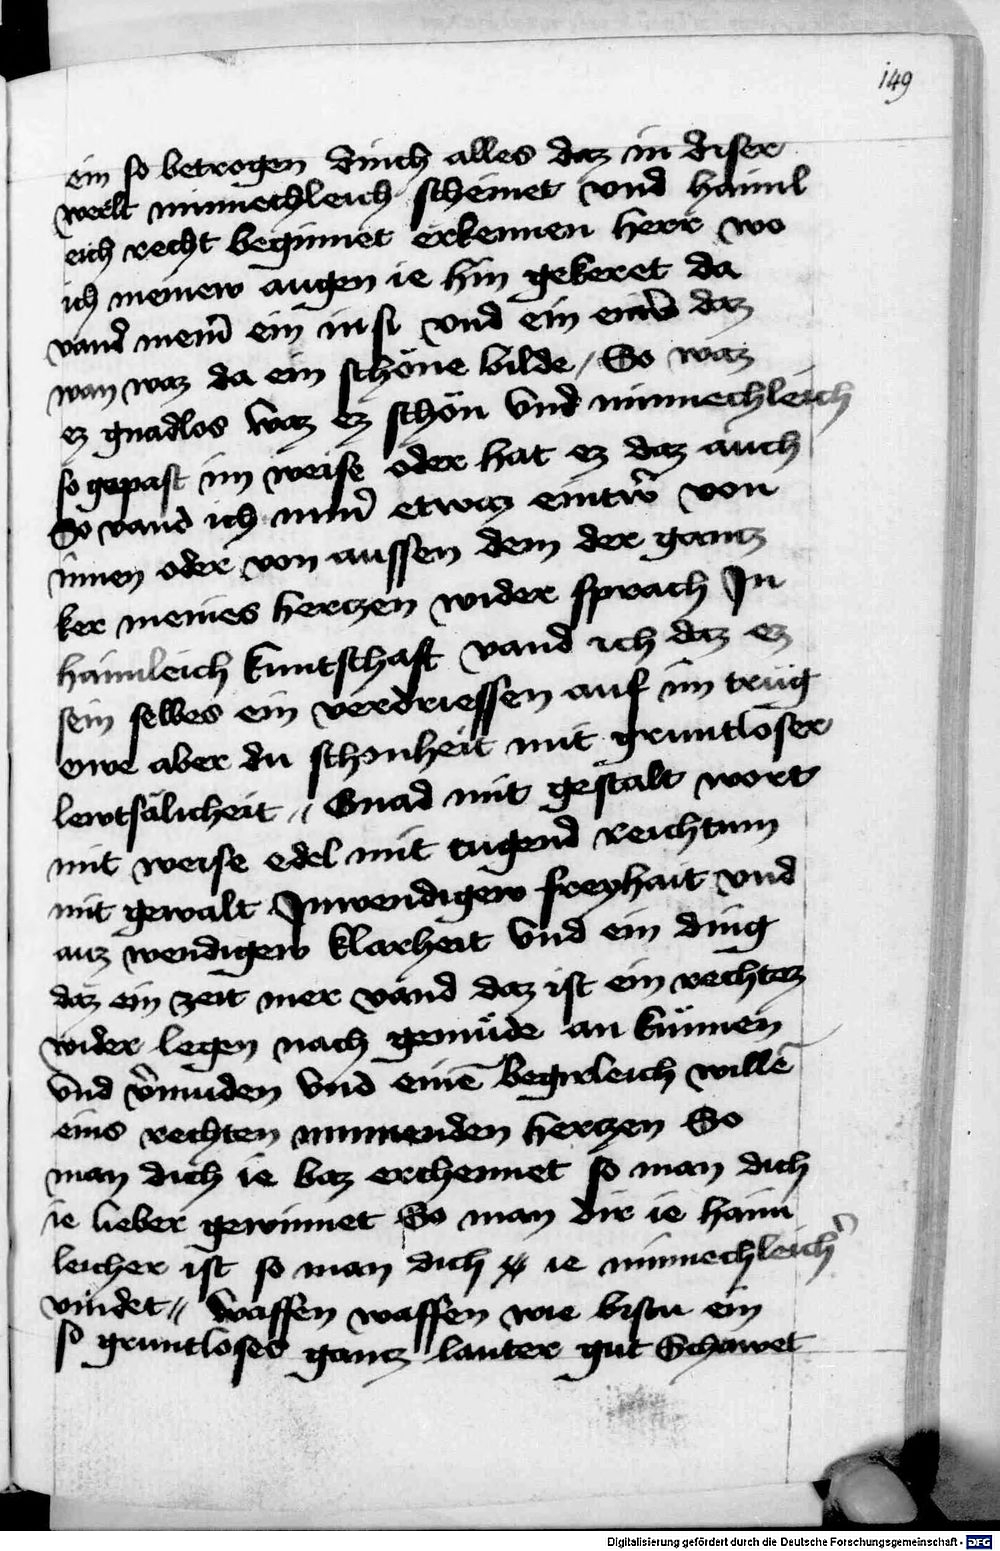 149
ein so betrogen dinch alles daz in diser
werlt minnechleich scheinet vnd haiml
eich recht beginnet erkennen herr wo
ich meinew augen ie hin gekeret da
vand ein nisi vnd ein daz
wan waz da ein schöne bilde / So waz
ez gnadlos waz ez schön vnd minnechleich
so gepast im weise oder hat ez daz auch
So vand ich etwaz von
innen oder von aussen dem der gantz
ker meines hertzen wider sprach In
haimleich kuntschaft vand ich daz ez
sein selbes ein verdriessen auf im trüg
owe aber du schonheit mit gruntloser
lewtsälicheit // Gnad mit gestalt wort
mit weise edel mit tugend reichtum
mit gewalt Inwendigew freyhait vnd
auz wendigew klarheit vnd ein ding
daz ein zeit mer vand daz ist ein rechtez
wider legen nach gemüde an künnen
vnd vnd einē begirleich willē
eins rechten minnenden hertzen So
man dich ie baz erchennet so man dich
ie lieber gewinnet So man dir ie haim
leicher ist so man dich ie minnechleich
vindet // Waffen waffen wie bistu ein
so gruntloses gantz lauter gut Schawet
Digitalisierung gefördert durch die Deutsche Forschungsgemeinschaft - DFG